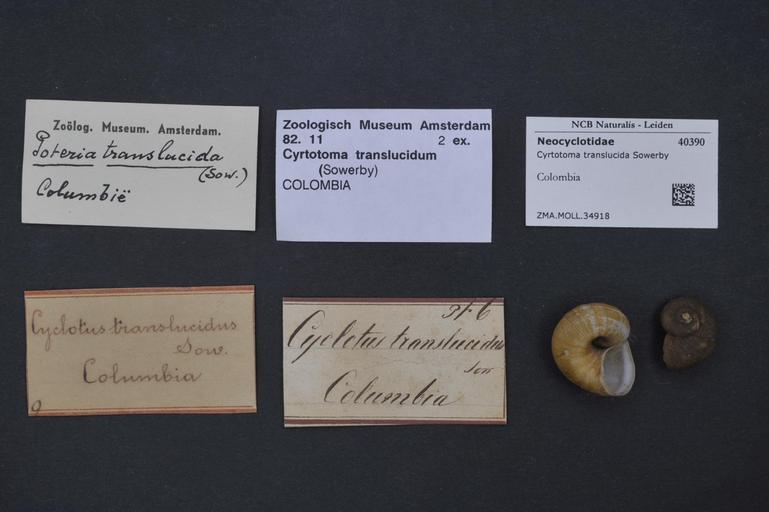 Zoölog. Museum. Amsterdam.
Poteria translucida
(Sow.)
Columbië
Zoologisch Museum Amsterdam
82. 11 2 ex.
Cyrtotoma translucidum
(Sowerby)
COLOMBIA
NCB Naturalis - Leiden
Neocyclotidae 40390
Cyrtotoma translucida Sowerby
Colombia
ZMA.MOLL.34918
Cyclotus translucidus
Sow.
Columbia
9
Cyclotus translucidus
Sow
Columbia